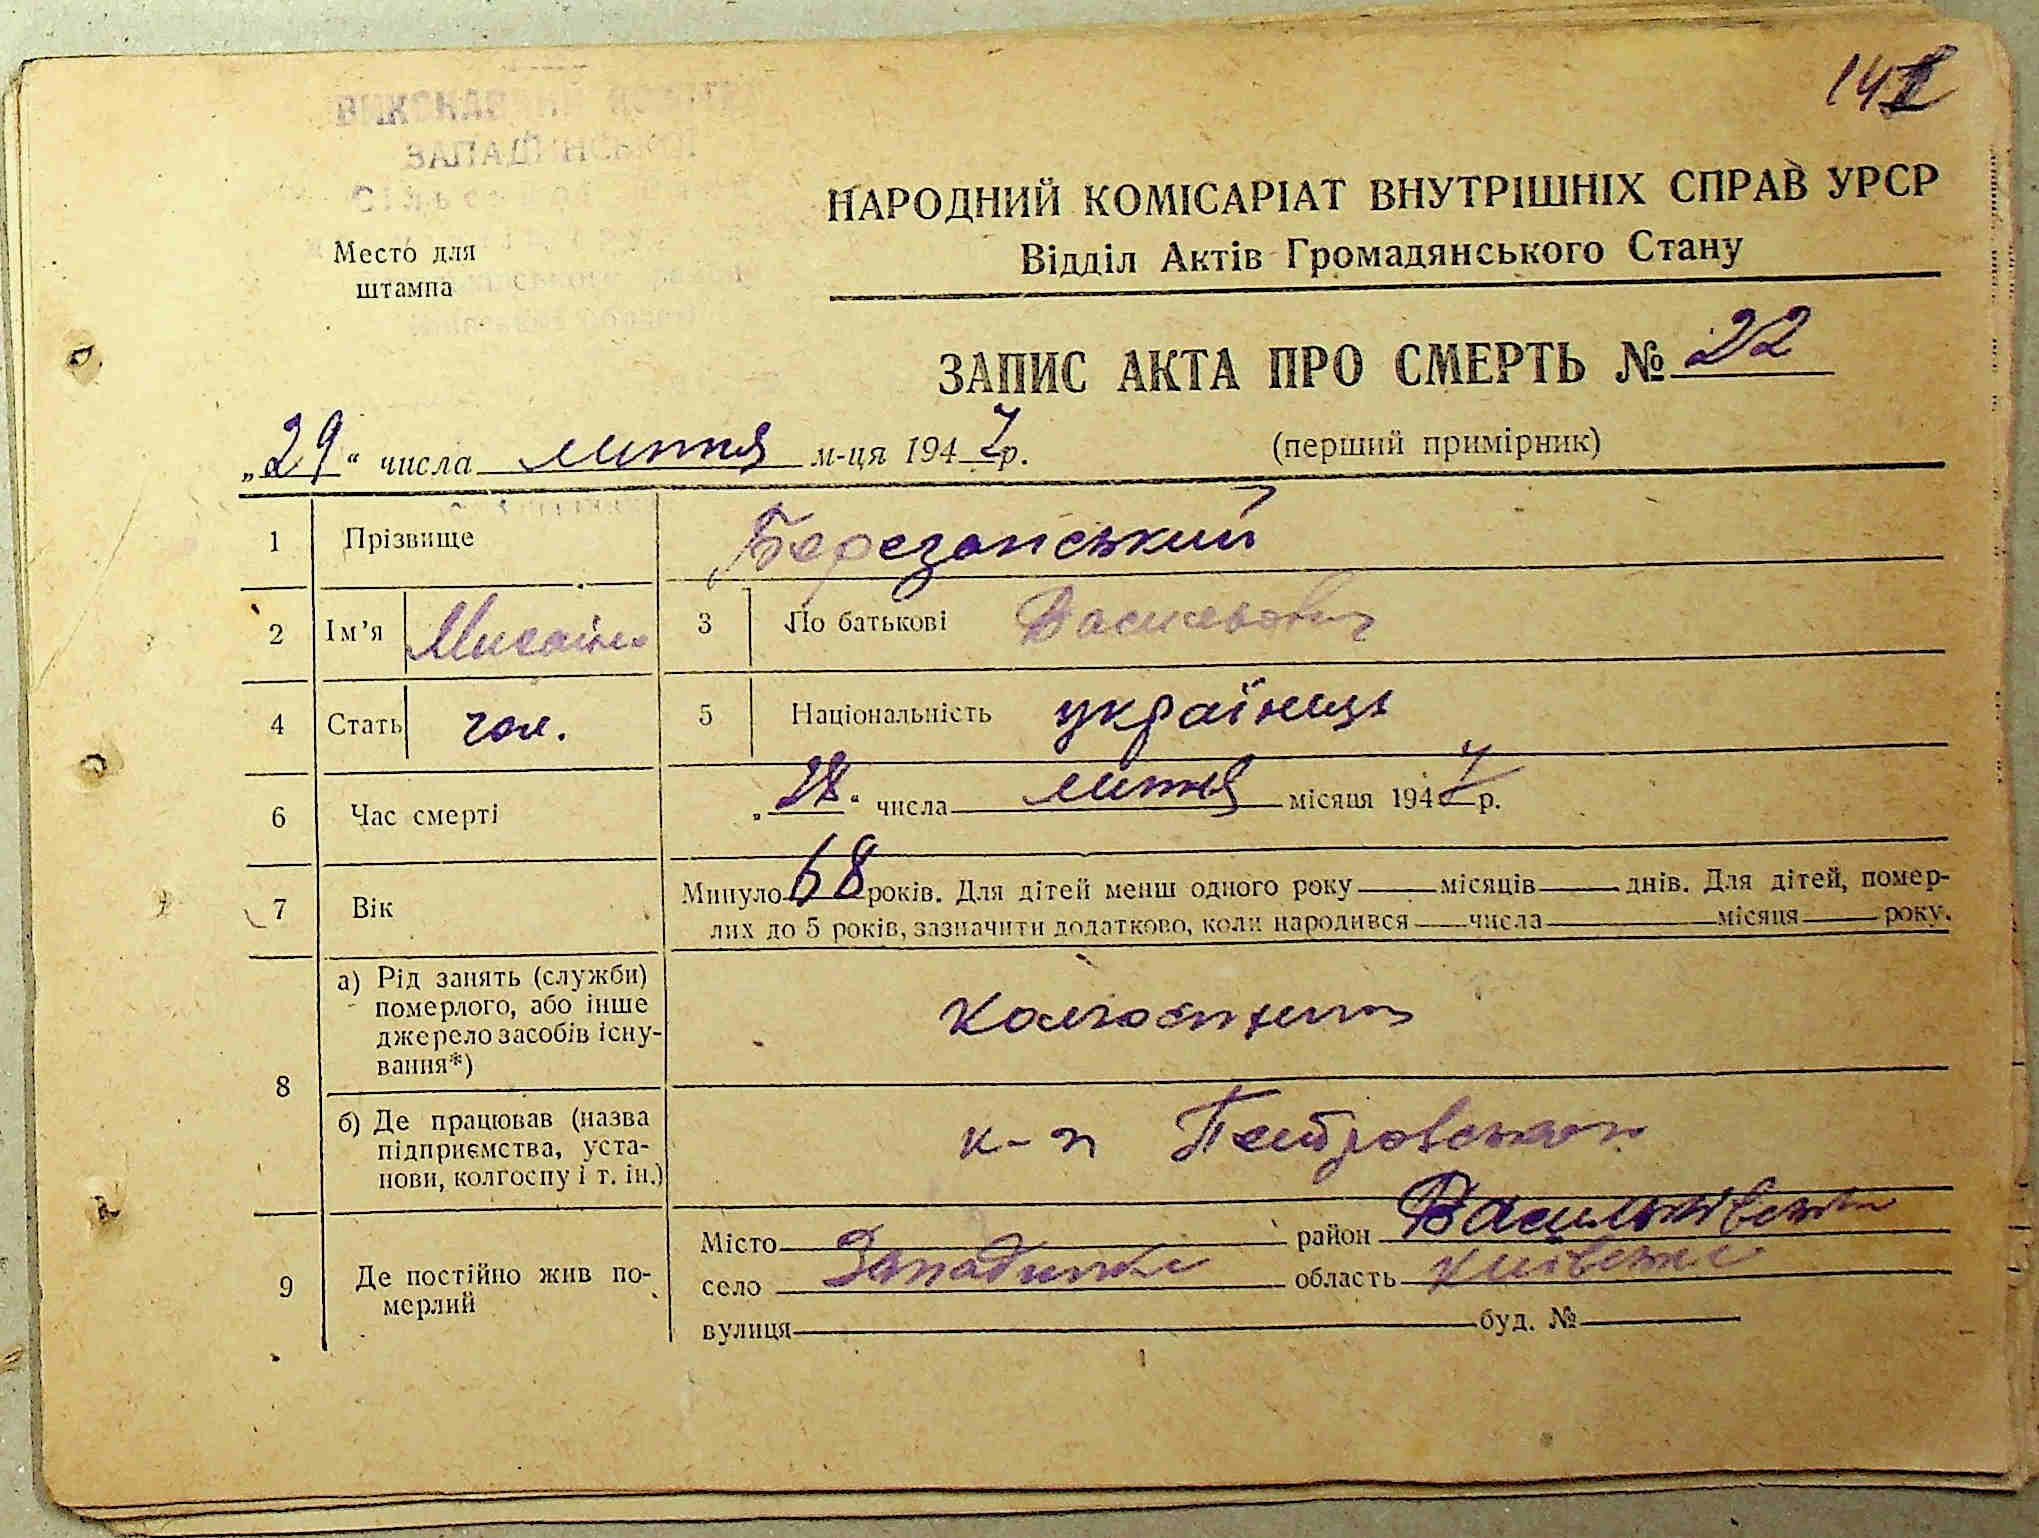 142
ВИКОНАВЧИЙ КОМІТЕТ
ЗАПАДИНСЬКОЇ
НАРОДНИЙ КОМІСАРІАТ ВНУТРІШНІХ СПРАВ УРСР
Відділ Актів Громадянського Стану
Место для
штампа
ЗАПИС АКТА ПРО СМЕРТЬ № 22
„29“ числа липня м-ця 1947 р.
(перший примірник)
1 Прізвище Березанський
2 Ім’я Михайло 3 По батькові Васильович
4 Стать чол. 5 Національність українець
6 Час смерті „28“ числа липня місяця 1947 р.
7 Вік Минуло 68 років. Для дітей менш одного року місяців днів. Для дітей, помер-
лих до 5 років, зазначити додатково, коли народився числа місяця року.
8 а) Рід занять (служби)
померлого, або інше
джерело засобів існу-
вання*)
колгоспник
б) Де працював (назва
підприємства, уста-
нови, колгоспу і т. ін.)
к-п Петровського
9 Де постійно жив по-
мерлий
Місто район Васильківський
село Западинка область київська
вулиця буд. №